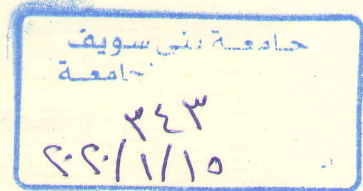 جامعة بنى سويف
جامعة
٣٤٣
٢٠٢٠/١/١٥